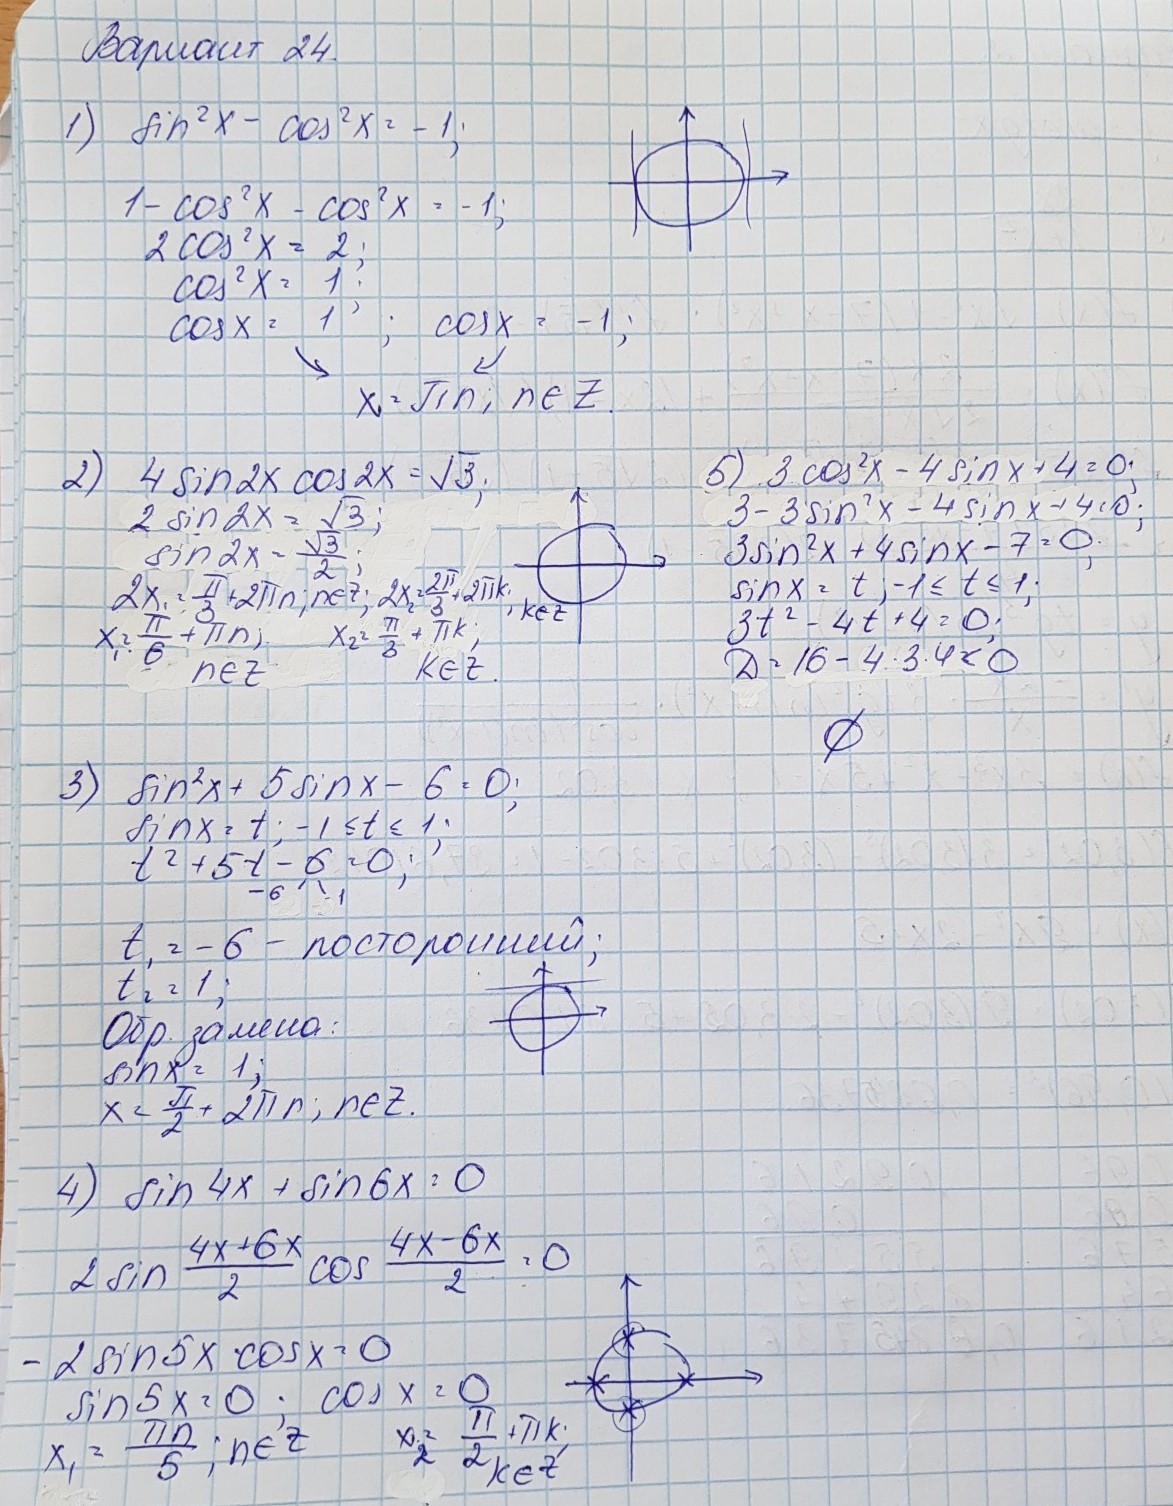 Вариант 24.
1) sin²x - cos²x = -1;
1 - cos²x - cos²x = -1;
2cos²x = 2;
cos²x = 1;
cosx = 1 ; cosx = -1;
x = πn; n∈Z.
2) 4sin2x cos2x = √3;
2 sin2x = √3;
sin2x = √3/2;
2x₁ = π/3 + 2πn; n∈Z; 2x₂ = 2π/3 + 2πk; k∈Z
x₁ = π/6 + πn; x₂ = π/3 + πk;
n∈Z k∈Z.
5) 3cos²x - 4sinx + 4 = 0;
3 - 3sin²x - 4sinx + 4 = 0;
3sin²x + 4sinx - 7 = 0;
sinx = t; -1 ≤ t ≤ 1;
3t² - 4t + 4 = 0;
D = 16 - 4·3·4 < 0
∅
3) sin²x + 5sinx - 6 = 0;
sinx = t; -1 ≤ t ≤ 1;
t² + 5t - 6 = 0;
-6 1
t₁ = -6 - посторонний;
t₂ = 1;
Обр. замена:
sinx = 1;
x = π/2 + 2πn; n∈Z.
4) sin4x + sin6x = 0
2 sin (4x+6x)/2 cos (4x-6x)/2 = 0
-2sin5x·cosx = 0
sin5x = 0 ; cosx = 0
x₁ = πn/5 ; n∈Z x₂ = π/2 + πk;
k∈Z